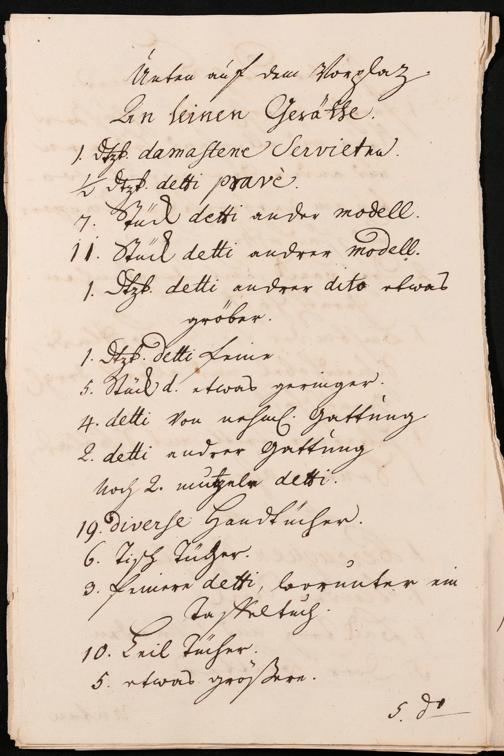 Unten auf dem Vorplaz
An leinen Geräthe.
1. Dtzt. damastene Servieten.
1/2 Dtzt. detti pravè.
7. Stück detti ander modell.
11. Stück detti andrer modell.
1. Dtzt. detti andrer dito etwas
gröber.
1. Dtzt. detti feine
5. Stück d. etwas geringer.
4. detti von nehml. Gattung
2. detti andrer Gattung
Noch 2. detti.
19. diverse Handtücher.
6. Tisch Tücher.
3. feinere detti, worunter ein
Taffeltuch.
10. Leil Tücher.
5. etwas größere.
5. do